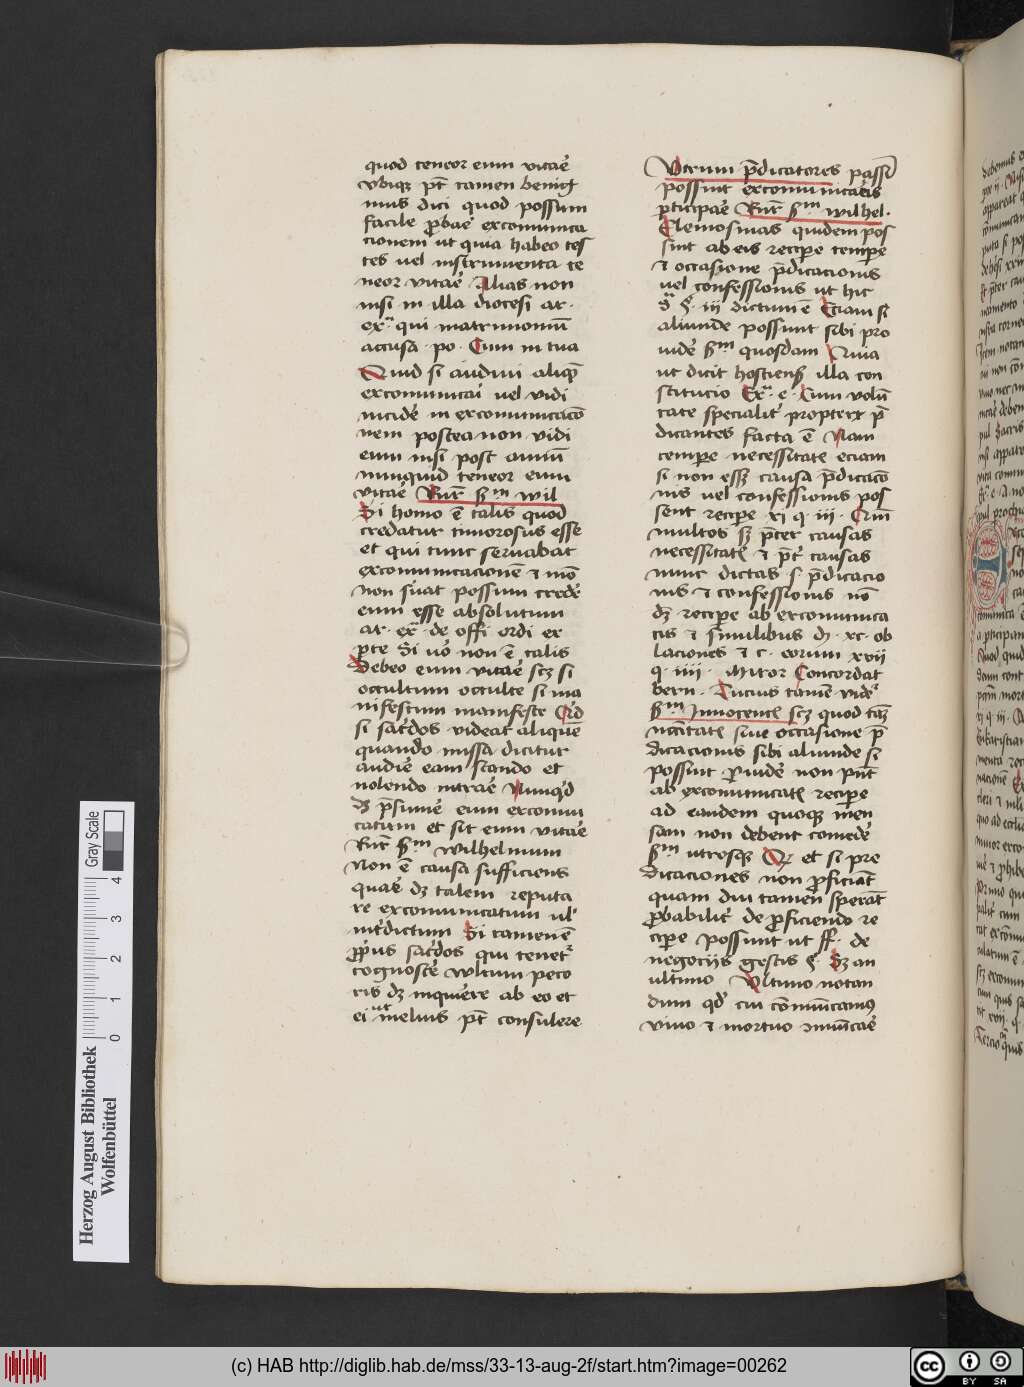 quod teneor eum vitaē
vbiqꝫ pt̄ tamen benig
nius dici quod possum
facile ꝓbaē excomunica
tionem ut quia habeo tes
tes uel instrumenta te
neor vitaē Alias non
nisi in illa diocesi ar·
ex.ͣ qui matrimoniū
accusa · po · Cum in tua
Quid si audiui aliqͣꝫ
excomunicaī uel vidi
incidē in excomunicacō
nem postea non vidi
eum nisi post annū
nunquid teneor eum
vitaē Rn̄r sm wil
Si homo ē talis quod
credatur timorosus esse
et qui tunc seruabat
excomunicacionē ⁊ mō
non suat possum credē
eum esse absolutum
ar· ex.ͣ de offi ordi ex
ꝑte Si uō non ē talis
debeo eum vitaē scꝫ si
occultum occulte si ma
nifestum manifeste Qd̄
si sac̄dos videat aliquē
quando missa dicitur
audiē eam stando et
nolendo intraē Nunqd̄
dꝫ p̄sumē eum excomu
catum et sit eum vitaē
Rn̄r sm wilhelmum
Non ē causa sufficiens
quaē dꝫ talem reputa
re excomunicatum ul'
int̄dictum Si tamen ē
ꝓp̄us sac̄dos qui tenet̄
cognoscē vultum peco
ris dꝫ inquirere ab eo et
ei ut melius pt̄ consulere
Vtrum p̄dicatores passī
possint excomunicatis
ꝑticipaē Rn̄r sm wilhel·
Elemosinas quidem pos
sint ab eis reciꝑe tempe
⁊ occasione p̄dicationis
uel confessionis ut hic
sͣ § iii dictum ē Etiam si
aliunde possunt sibi pro
uidē sm quosdam Quia
ut dicit hostiensꝫ illa con
stitucio Ex.ͣ e · Cum volūn
tate specialit̄ propter p̄
dicantes facta ē Nam
tempe necessitatꝭ etiam
si non essꝫ causa p̄dicacō
nis uel confessionis pos
sent reciꝑe xi q · iii · Qm̄
multos sꝫ p̄ter causas
necessitatꝭ ⁊ p̄t causas
nunc dictas s p̄dicacio
nis ⁊ confessionis nō
dꝫ reciꝑe ab excomunica
tis ⁊ similibus di · xc · ob
laciones ⁊ c · eorum xvii
q · iiii · Miror Concordat
bern · Tucius tamē vidē
sm Innocentꝭ scꝫ quod cāꝫ
nc̄citatꝭ siue occasione p̄
dicacionis sibi aliunde si
possint ꝓuidē non pn̄t
ab excomunicatꝭ reciꝑe
ad eandem quoqꝫ men
sam non debent comedē
sm utrosqꝫ Qr et si pre
dicaciones non ꝓficiāt
quam diu tamen sperāt
ꝓbabilit̄ de ꝓficiendo re
ciꝑe possunt ut ff· de
negociis gestis §· Sꝫ an
ultimo Vltimo notan
dum qd̄ cui cōmunicamꝰ
viuo ⁊ mortuo ꝯmūicaē
Herzog August Bibliothek
Wolfenbüttel
Gray Scale
0 1 2 3 4
(c) HAB http://diglib.hab.de/mss/33-13-aug-2f/start.htm?image=00262
cc BY SA